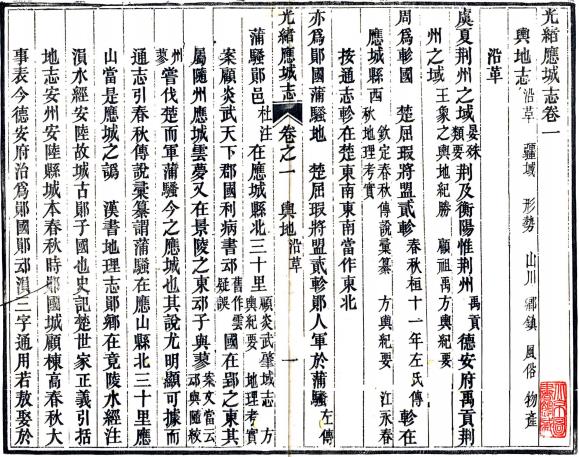 光緒應城志卷一
輿地志 沿革 疆域 形勢 山川 鄉鎮 風俗 物產
沿革
虞夏荊州之域 晏殊類要 荊及衡陽惟荊州 禹貢 德安府禹貢荊
州之域 王象之輿地紀勝 顧祖禹方輿紀要
周爲軫國 楚屈瑕將盟貳軫 春秋桓十一年左氏傳 軫在
應城縣西 欽定春秋傳說彙纂 方輿紀要 江永春秋地理考實
按通志軫在楚東南東南當作東北
亦爲鄖國蒲騷地 楚屈瑕將盟貳軫鄖人軍於蒲騷 左傳
光緒應城志 卷之一 輿地 沿革 一
蒲騷鄖邑 杜注 在應城縣北三十里 顧炎武肇域志 方輿紀要 地理考實
案顧炎武天下郡國利病書䢵 舊作雲疑誤 國在郢之東其
屬隨州應城雲夢又在景陵之東䢵子與蓼 案文當云䢵與隨絞州蓼
嘗伐楚而軍蒲騷今之應城也其說尤明顯可據而
通志引春秋傳說彙纂謂蒲騷在應山縣北三十里應
山當是應城之譌 漢書地理志鄖鄉在竟陵水經注
溳水經安陸故城古鄖子國也史記楚世家正義引括
地志安州安陸縣城本春秋時鄖國城顧棟高春秋大
事表今德安府治爲鄖國鄖䢵溳三字通用若敖娶於